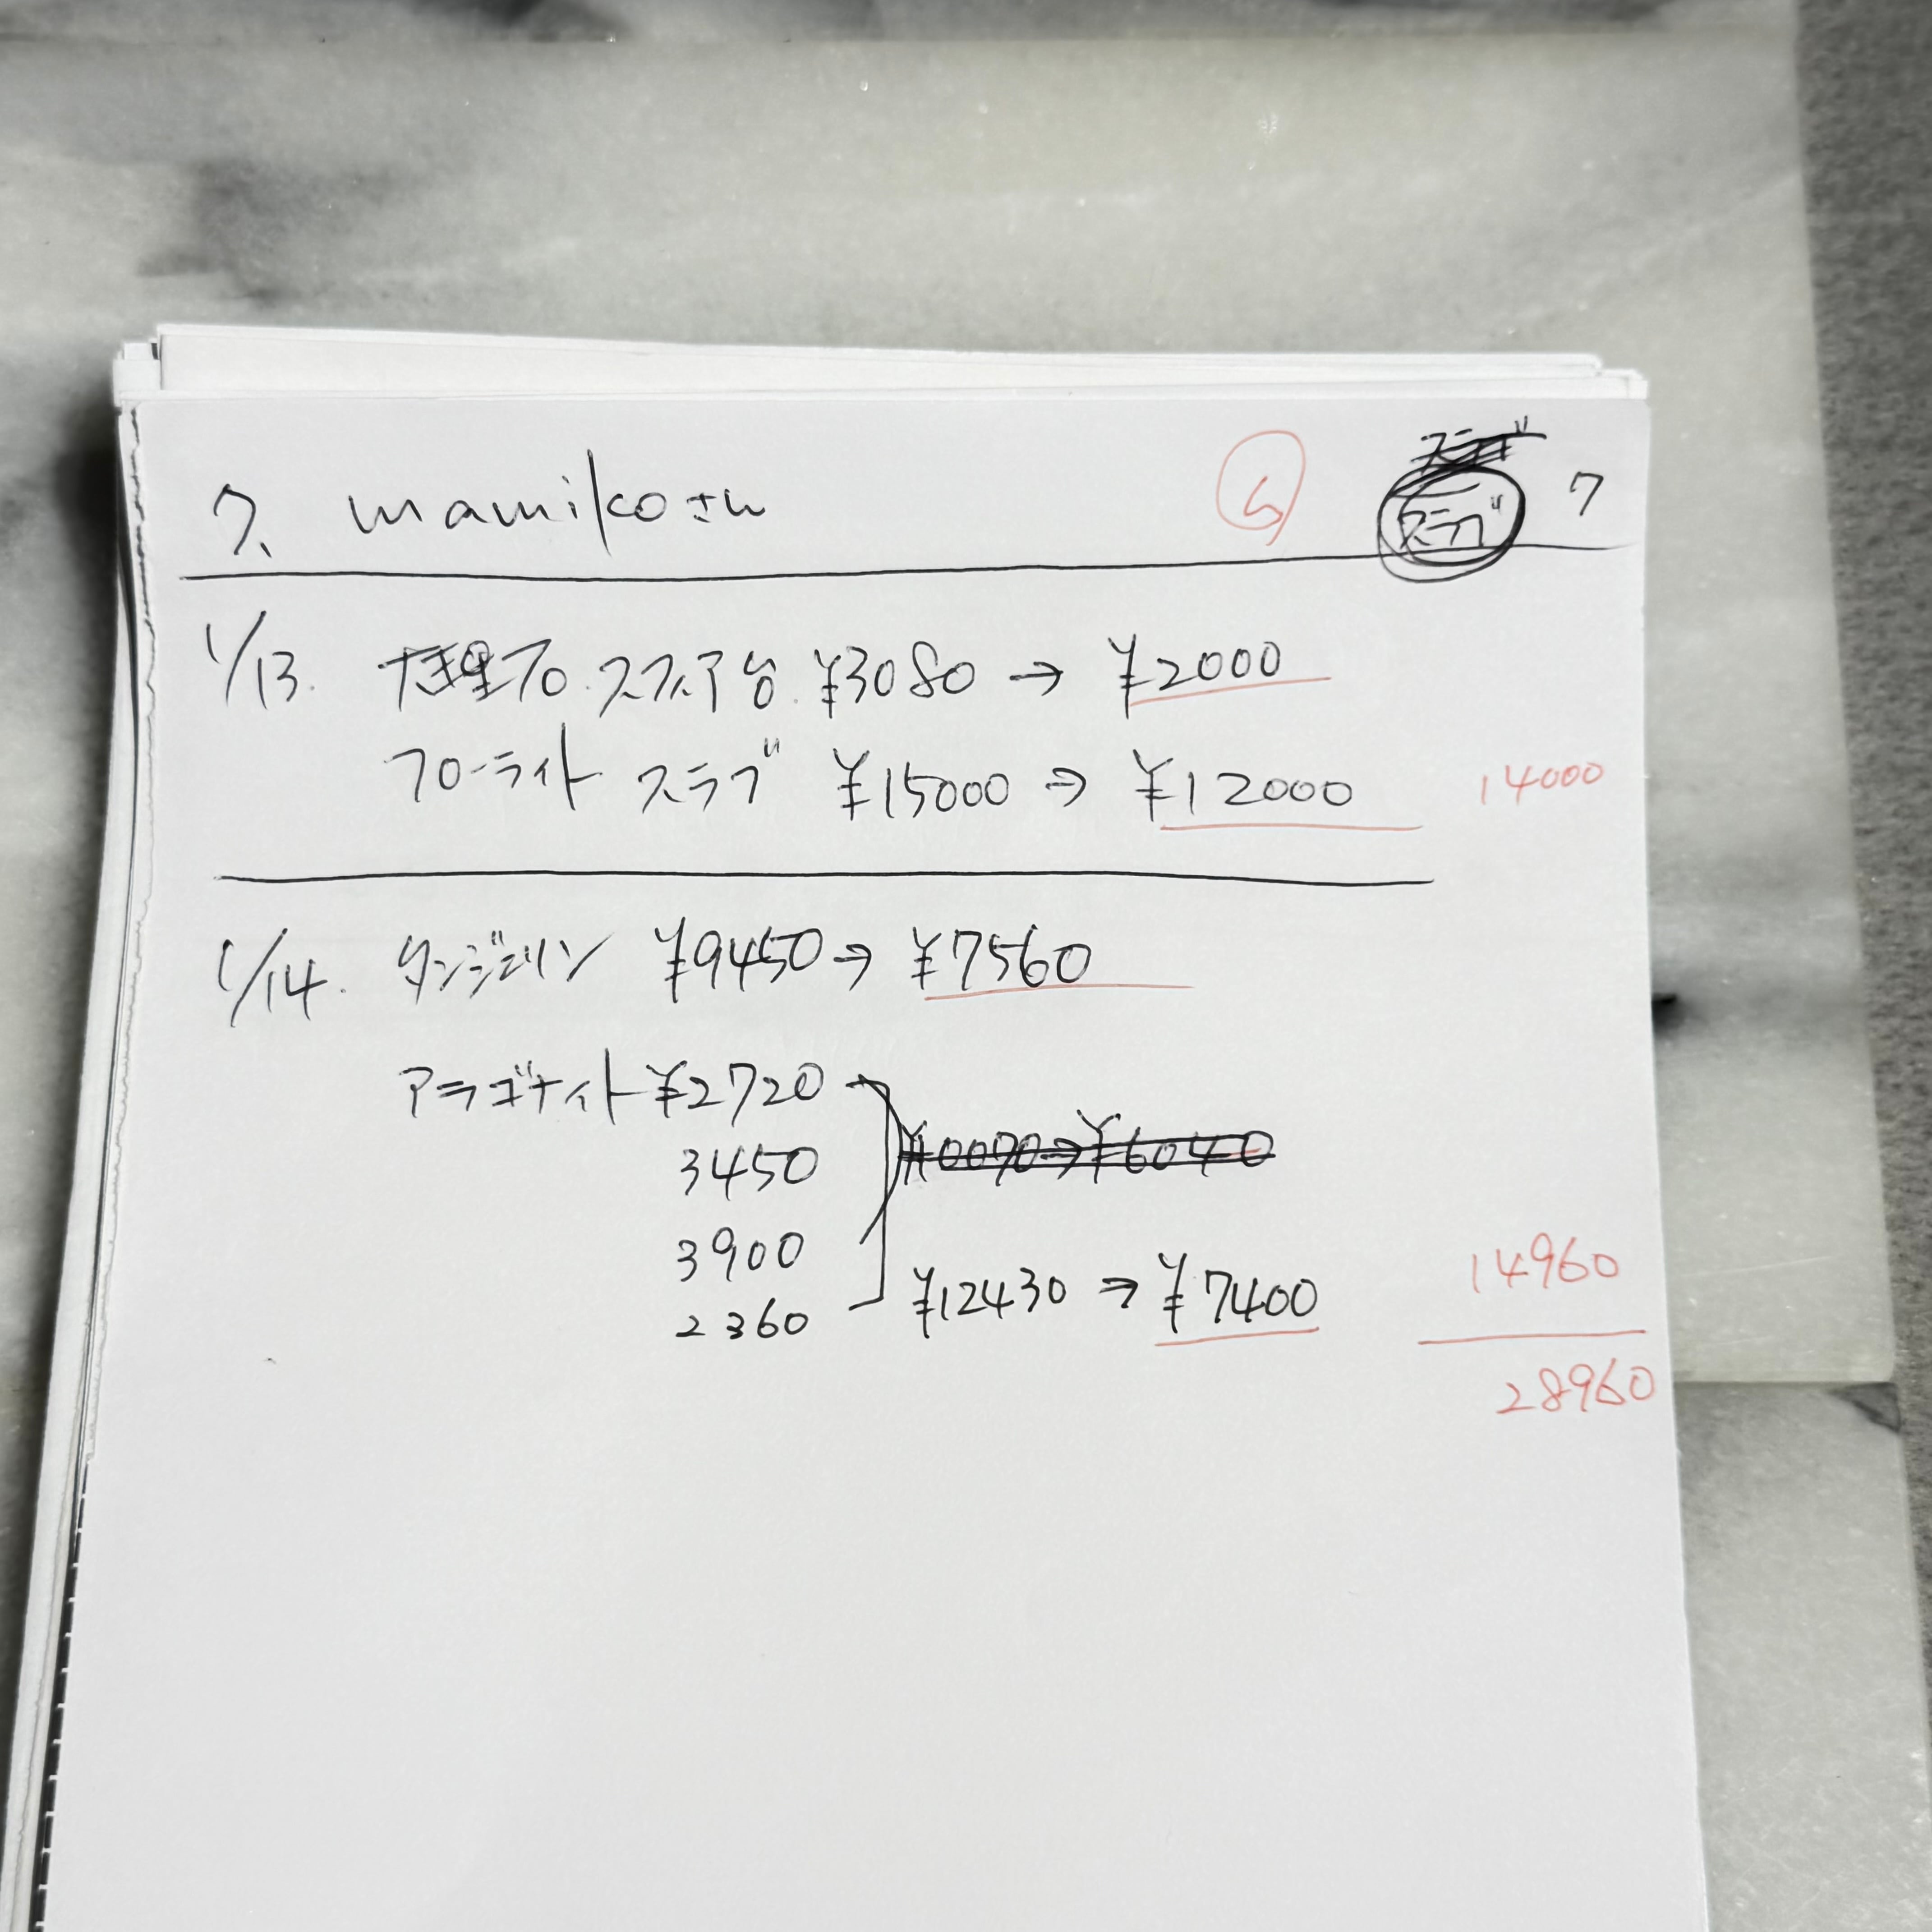 7. mamikoさん 7
スラブ
1/13. スフィア台 ¥3080 → ¥2000
フローライト スラブ ¥15000 → ¥12000 14000
1/14. タンジェリン ¥9450 → ¥7560
アラゴナイト ¥2720
¥10070 → ¥6040
3450
3900
2360 ¥12430 → ¥7400
14960
28960